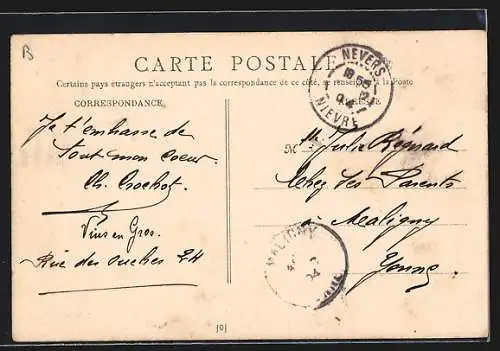 B
CARTE POSTALE
Certains pays étrangers n'acceptent pas la correspondance de ce côté, se renseigner à la Poste
CORRESPONDANCE
NEVERS
NIEVRE
Je t'embrasse de
tout mon coeur
Ch. Crochot.
Vins en Gros.
Rue des ouches 24
M lle Julia Régnard
Chez Ses Parents
à Maligny
Yonne
MALIGNY